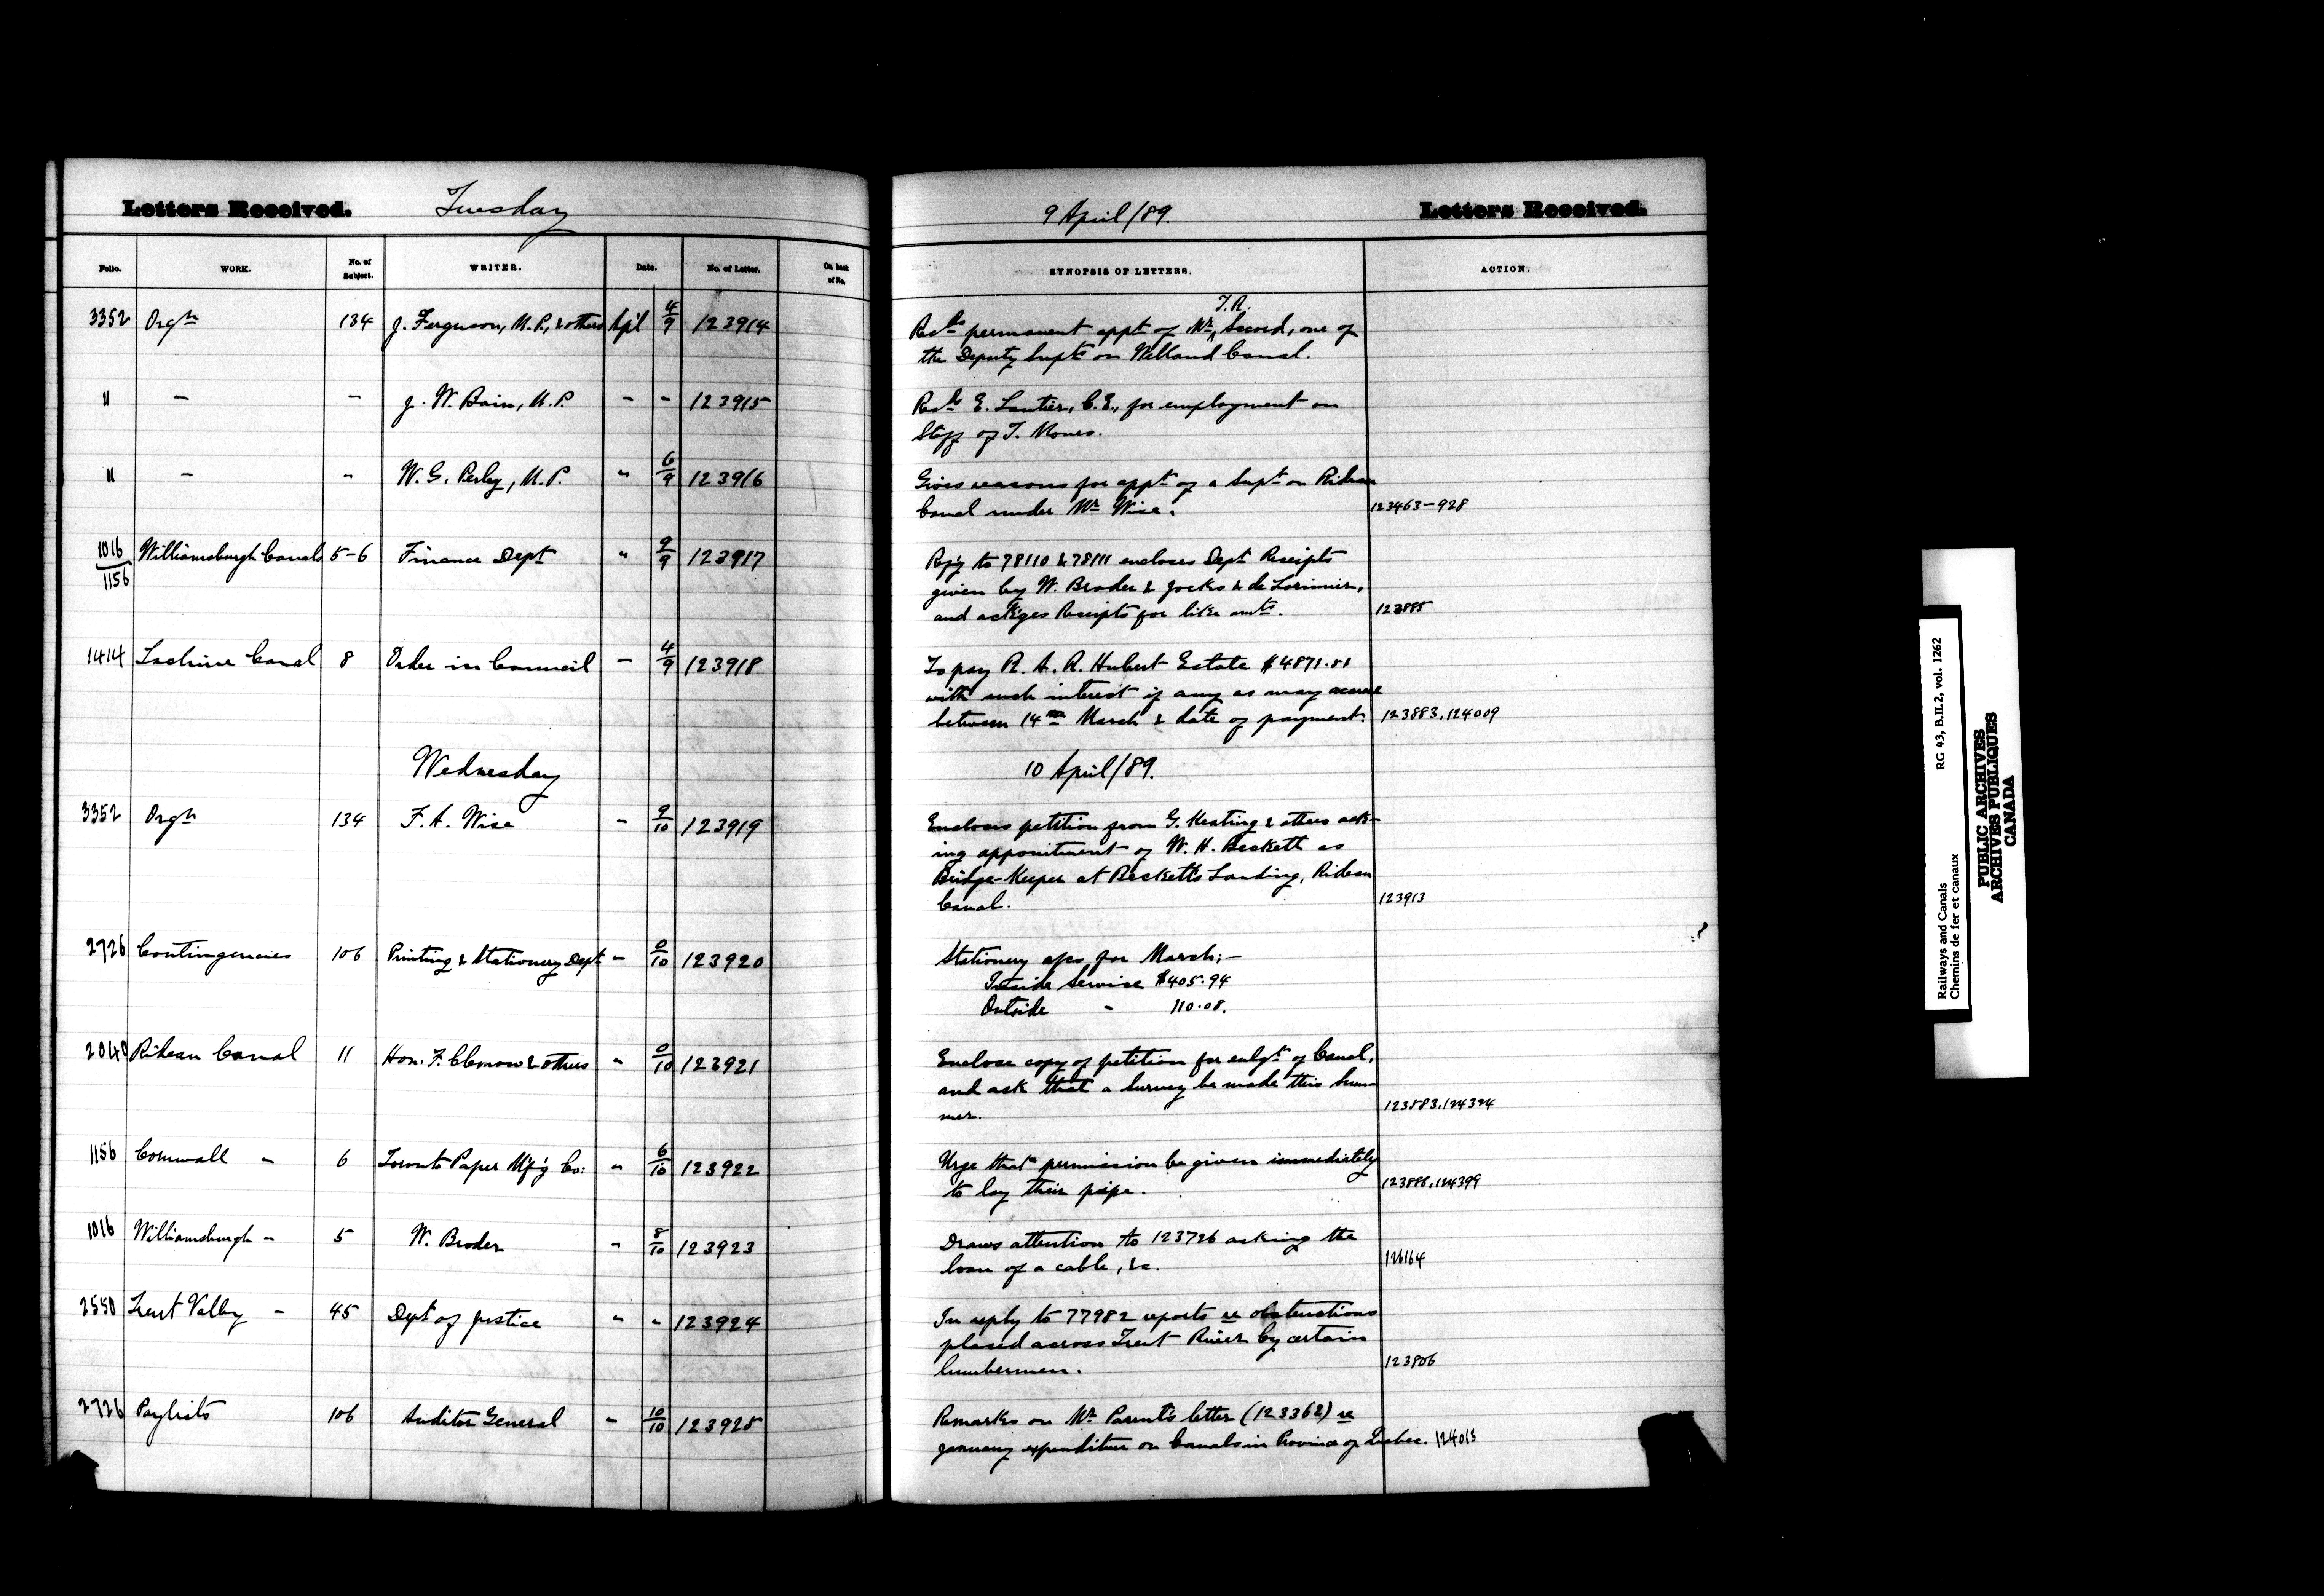 Letters Received. Tuesday 9 April/89. Letters Received.
Folio. WORK. No. of Subject. WRITER. Date. No. of Letter. On back of No. SYNOPSIS OF LETTERS. ACTION.
3352 Orgn 134 J. Ferguson, M.P., & others Apl 4/9 123914 permanent appt of Mr T.R. Secord, one of
the Deputy Supts on Welland Canal.
" - - J. W. Bain, M.P. - - 123915 E. Lantier, C.E., for employment on
Staff of T. Monro.
" - - W. G. Perley, M.P. " 6/9 123916 Gives reasons for appt of a Supt on Rideau
Canal under Mr Wise. 123463-928
1016/1156 Williamsburgh Canals 5-6 Finance Dept " 9/9 123917 Rep'g to 78110 & 78111 encloses Dept Receipts
given by W. Broder & Jocks & de Lorimier,
and ackges Receipts for like amts. 123885
1414 Lachine Canal 8 Order in Council - 4/9 123918 To pay R. A. R. Hubert Estate $4871.81
with such interest if any as may accrue
between 14th March & date of payment. 123883, 124009
Wednesday 10 April/89.
3352 Orgn 134 F. A. Wise - 9/10 123919 Encloses petition from G. Keating & others ask-
ing appointment of W. H. Beckett as
Bridge-Keeper at Becketts Landing, Rideau
Canal. 123913
2726 Contingencies 106 Printing & Stationery Dept - 0/10 123920 Stationery a/cs for March:-
Inside Service $405.94
Outside - 110.08.
2040 Rideau Canal 11 Hon. F. Clemow & others " 0/10 123921 Enclose copy of petition for enlgt of Canal,
and ask that a Survey be made this Sum-
mer. 123883, 124324
1156 Cornwall - 6 Toronto Paper Mf'g Co: " 6/10 123922 Urge that permission be given immediately
to lay their pipe. 123888, 124399
1016 Williamsburgh - 5 W. Broder " 8/10 123923 Draws attention to 123726 asking the
loan of a cable, &c. 126164
2550 Trent Valley - 45 Dept of Justice " " 123924 In reply to 77982 reports re obstructions
placed across Trent River by certain
lumbermen. 123806
2726 Paylists 106 Auditor General - 10/10 123925 Remarks on Mr Parent's letter (123362) re
January expenditure on Canals in Province of Quebec. 124013
Railways and Canals RG 43, B.II.2, vol. 1262
Chemins de fer et canaux
PUBLIC ARCHIVES
ARCHIVES PUBLIQUES
CANADA